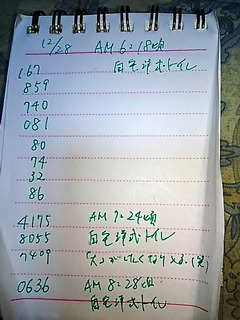 12/28 AM 6:18頃
167 自宅洋式トイレ
859
740
081
80
74
32
86
4175 AM 7:24頃
8055 自宅洋式トイレ
7409
0636 AM 8:28頃
自宅洋式トイレ